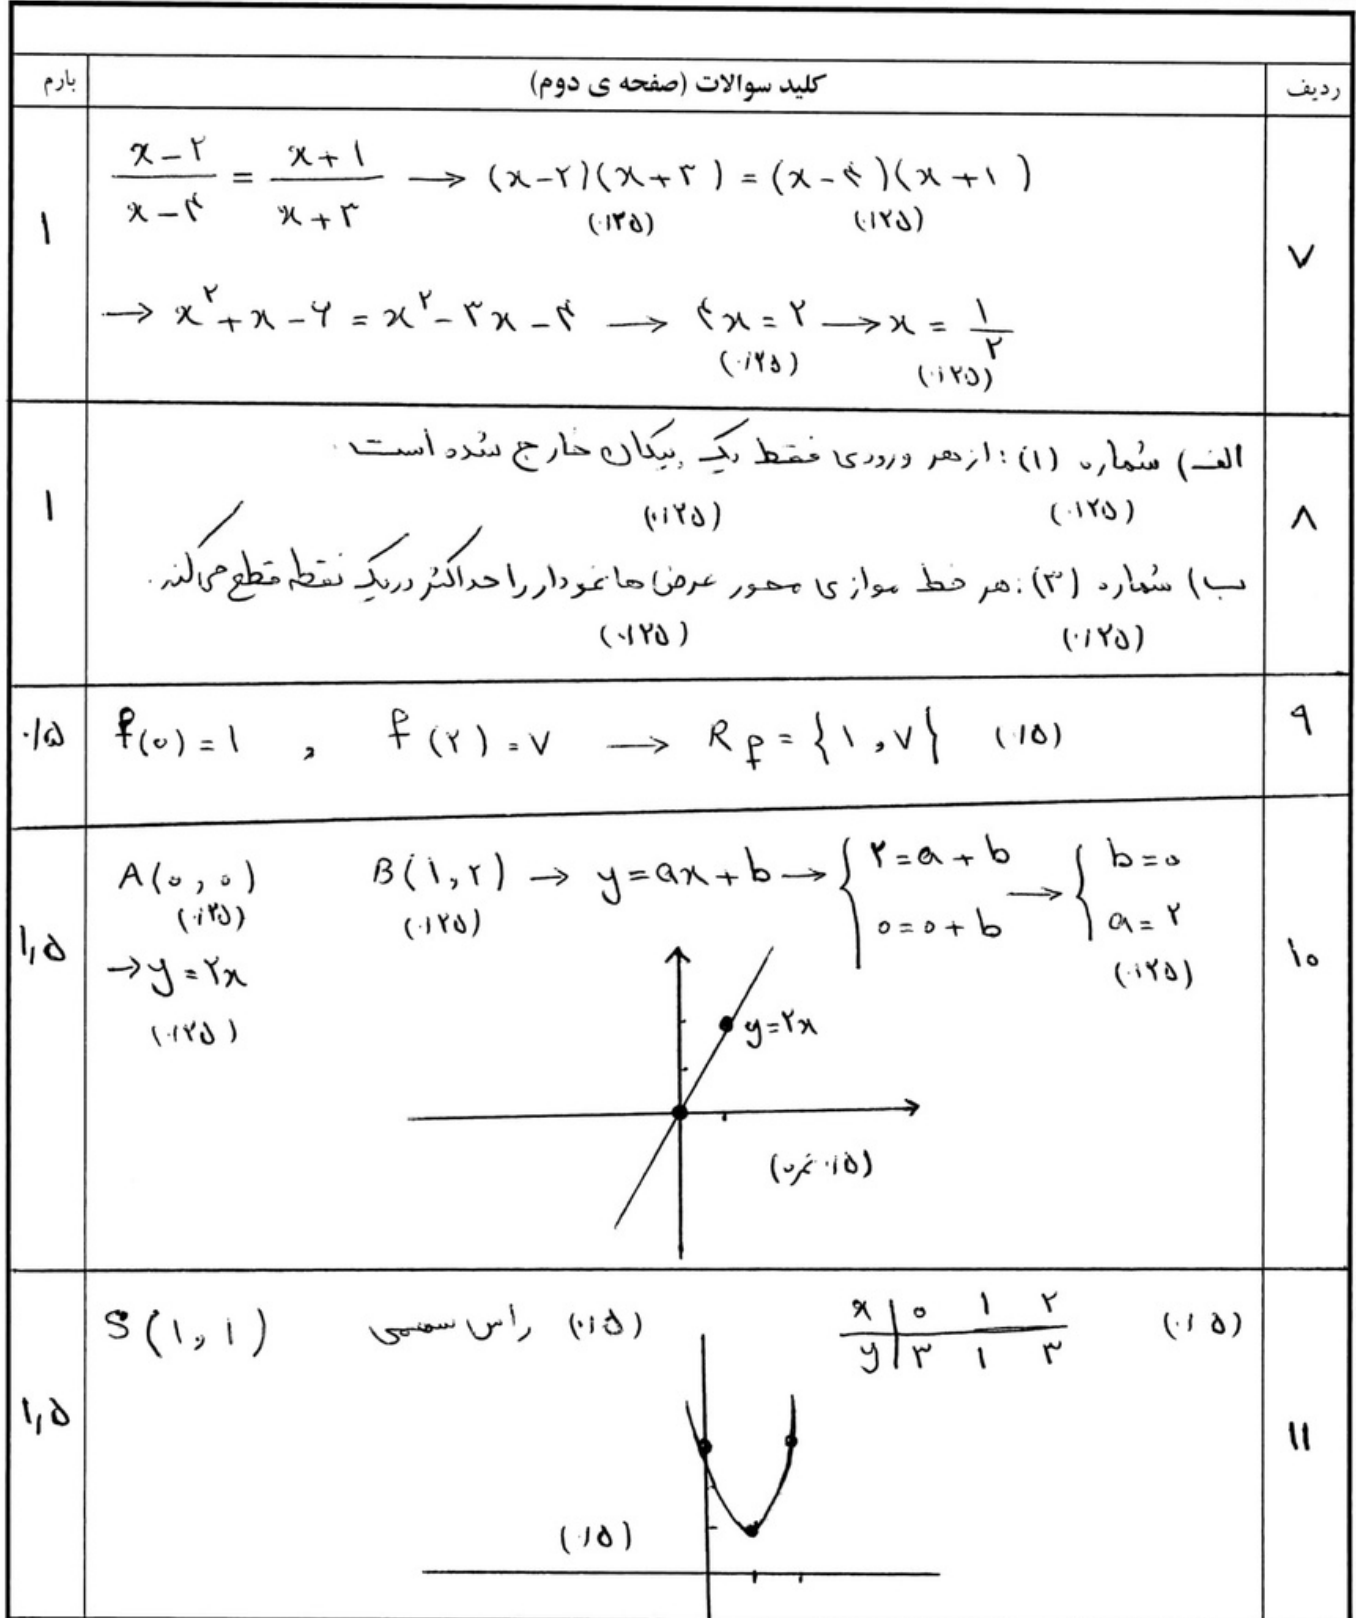 ردیف کلید سوالات (صفحه ی دوم) بارم
۷
(x-۲)/(x-۴) = (x+۱)/(x+۳) → (x-۲)(x+۳) = (x-۴)(x+۱)
(۰/۲۵) (۰/۲۵)
→ x^۲+x-۶ = x^۲-۳x-۴ → ۴x = ۲ → x = ۱/۲
(۰/۲۵) (۰/۲۵)
۱
۸
الف) شماره (۱): از هر ورودی فقط یک پیکان خارج شده است.
(۰/۲۵) (۰/۲۵)
ب) شماره (۳): هر خط موازی محور عرض ها نمودار را حداکثر در یک نقطه قطع می کند.
(۰/۲۵) (۰/۲۵)
۱
۹
f(۰) = ۱ , f(۲) = ۷ → R f = {۱, ۷} (۰/۵)
۰/۵
۱۰
A(۰,۰) B(۱,۲) → y=ax+b → { ۲=a+b → { b=۰
۰=۰+b a=۲
(۰/۲۵) (۰/۲۵) (۰/۲۵)
→ y=۲x
(۰/۲۵)
y=۲x
(۰/۵ نمره)
۱,۵
۱۱
S(۱,۱) راس سهمی (۰/۵) x | ۰ ۱ ۲ (۰/۵)
y | ۳ ۱ ۳
(۰/۵)
۱,۵